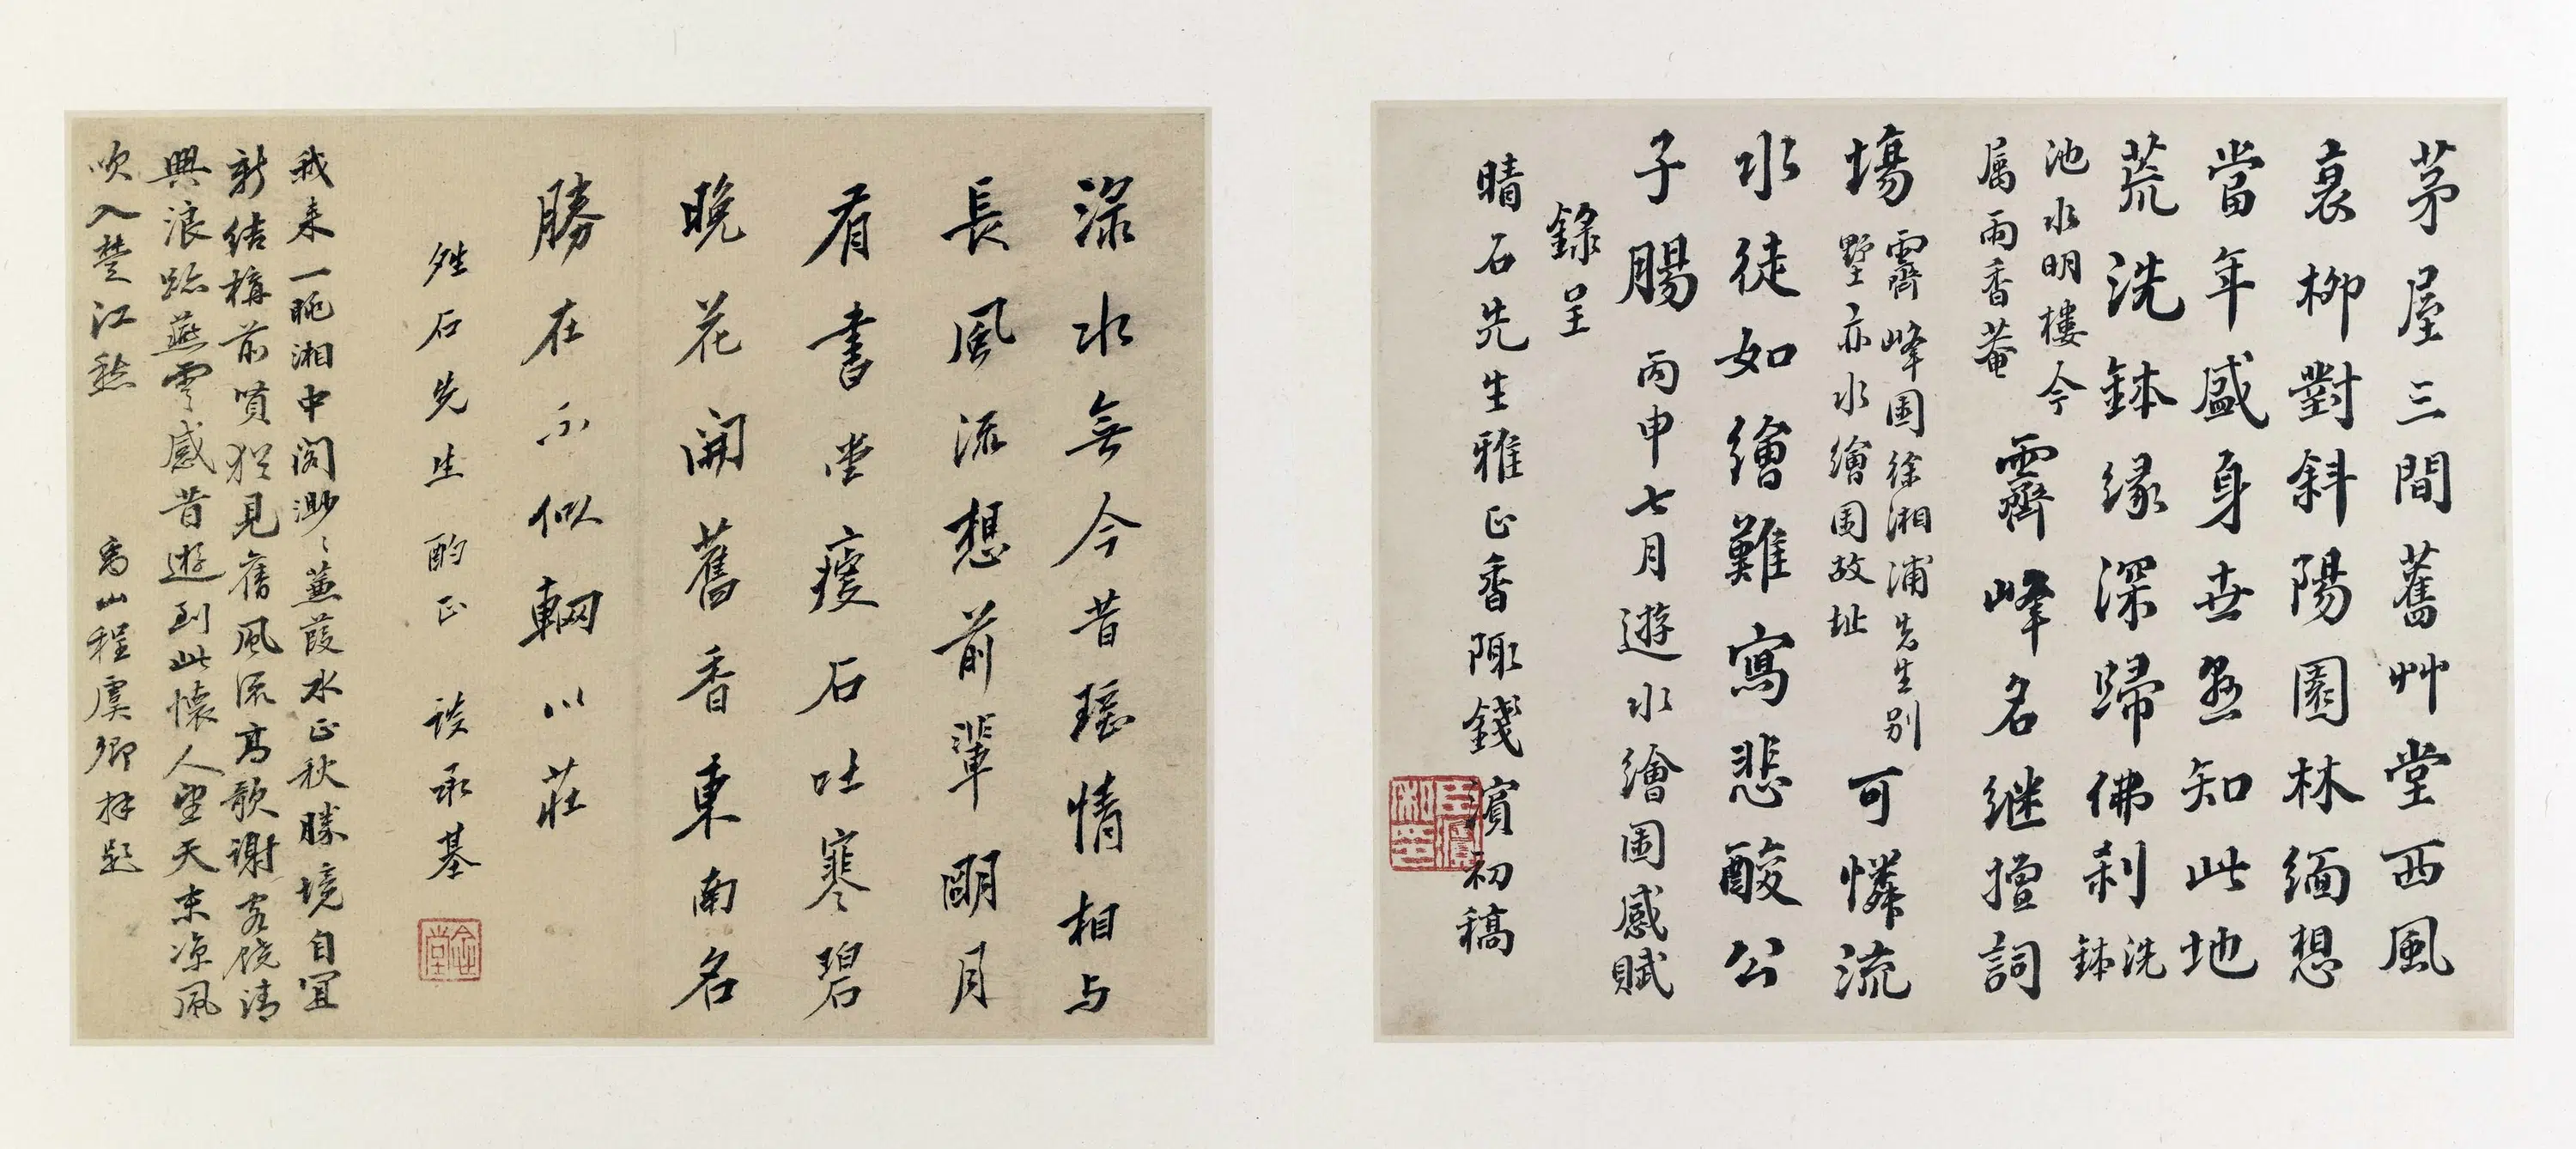 茅屋三間舊艸堂西風
衰柳對斜陽園林緬想
當年盛身世
知此地
荒洗鉢緣深歸佛刹洗
鉢
池水明樓今
属雨香菴
霽峰名継擅詞
場霽峰園徐湘浦先生别
墅亦水繪園故址
可憐流
水徒如繪難寫悲酸公
子腸
丙申七月遊水繪園感賦
錄呈
晴石先生雅正香陬錢濱初稿
渌水無今昔
情相与
長風流想前輩朙月
看書堂瘦石吐寒碧
晚花開舊香東南名
勝在不似輞川莊
石先生酌正 談承基
念堂
我来一眺湘中閣渺渺蒹葭水正秋勝境自宜
新結構前賢猶見舊風流高歌謝客饒清
興浪跡燕雲感昔遊到此懷人望天末凉風
吹入楚江愁
禹山程虞卿拜題